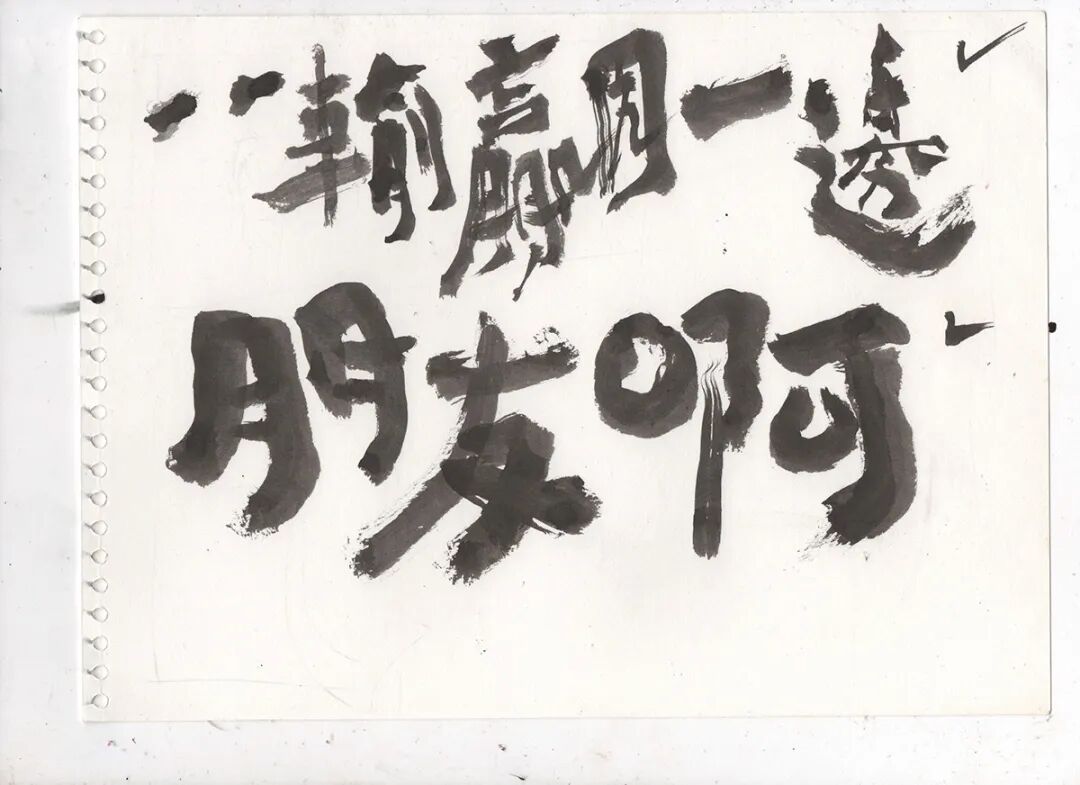 輸贏一邊
朋友啊